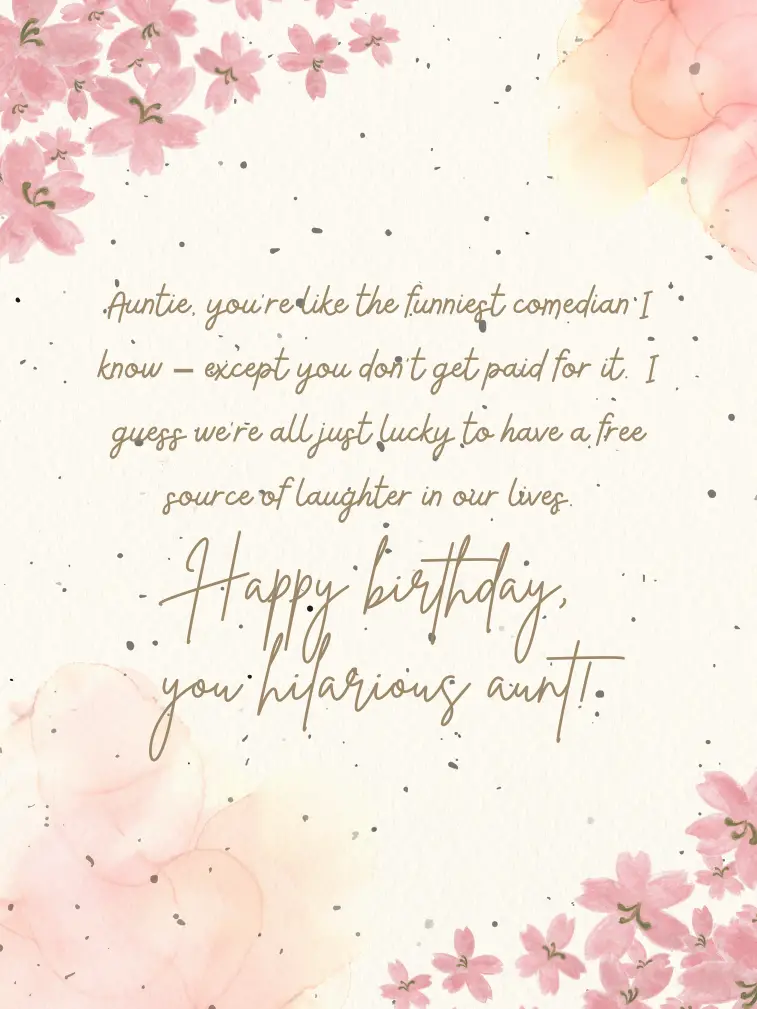 Auntie, you're like the funniest comedian I
know – except you don't get paid for it. I
guess we're all just lucky to have a free
source of laughter in our lives.
Happy birthday,
you hilarious aunt!